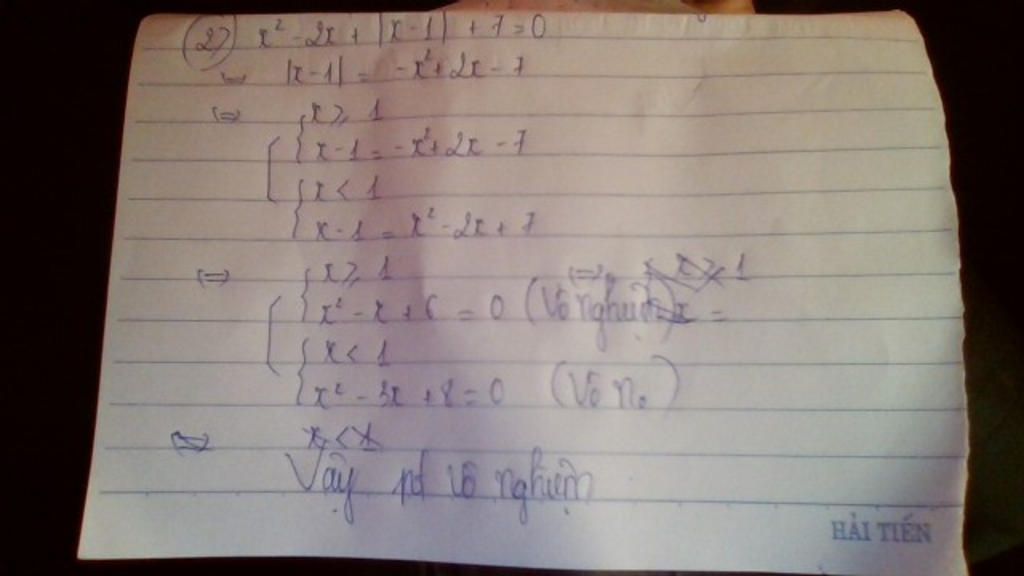 (2) x² - 2x + |x - 1| + 7 = 0
⇔ |x - 1| = -x² + 2x - 7
⇔ [ { x ≥ 1
x - 1 = -x² + 2x - 7
{ x < 1
x - 1 = x² - 2x + 7
⇔ [ { x ≥ 1 ⇔ x ≥ 1
x² - x + 6 = 0 (Vô nghiệm) x =
{ x < 1
x² - 3x + 8 = 0 (Vô no)
⇔ x < 1
Vậy pt vô nghiệm
HẢI TIẾN